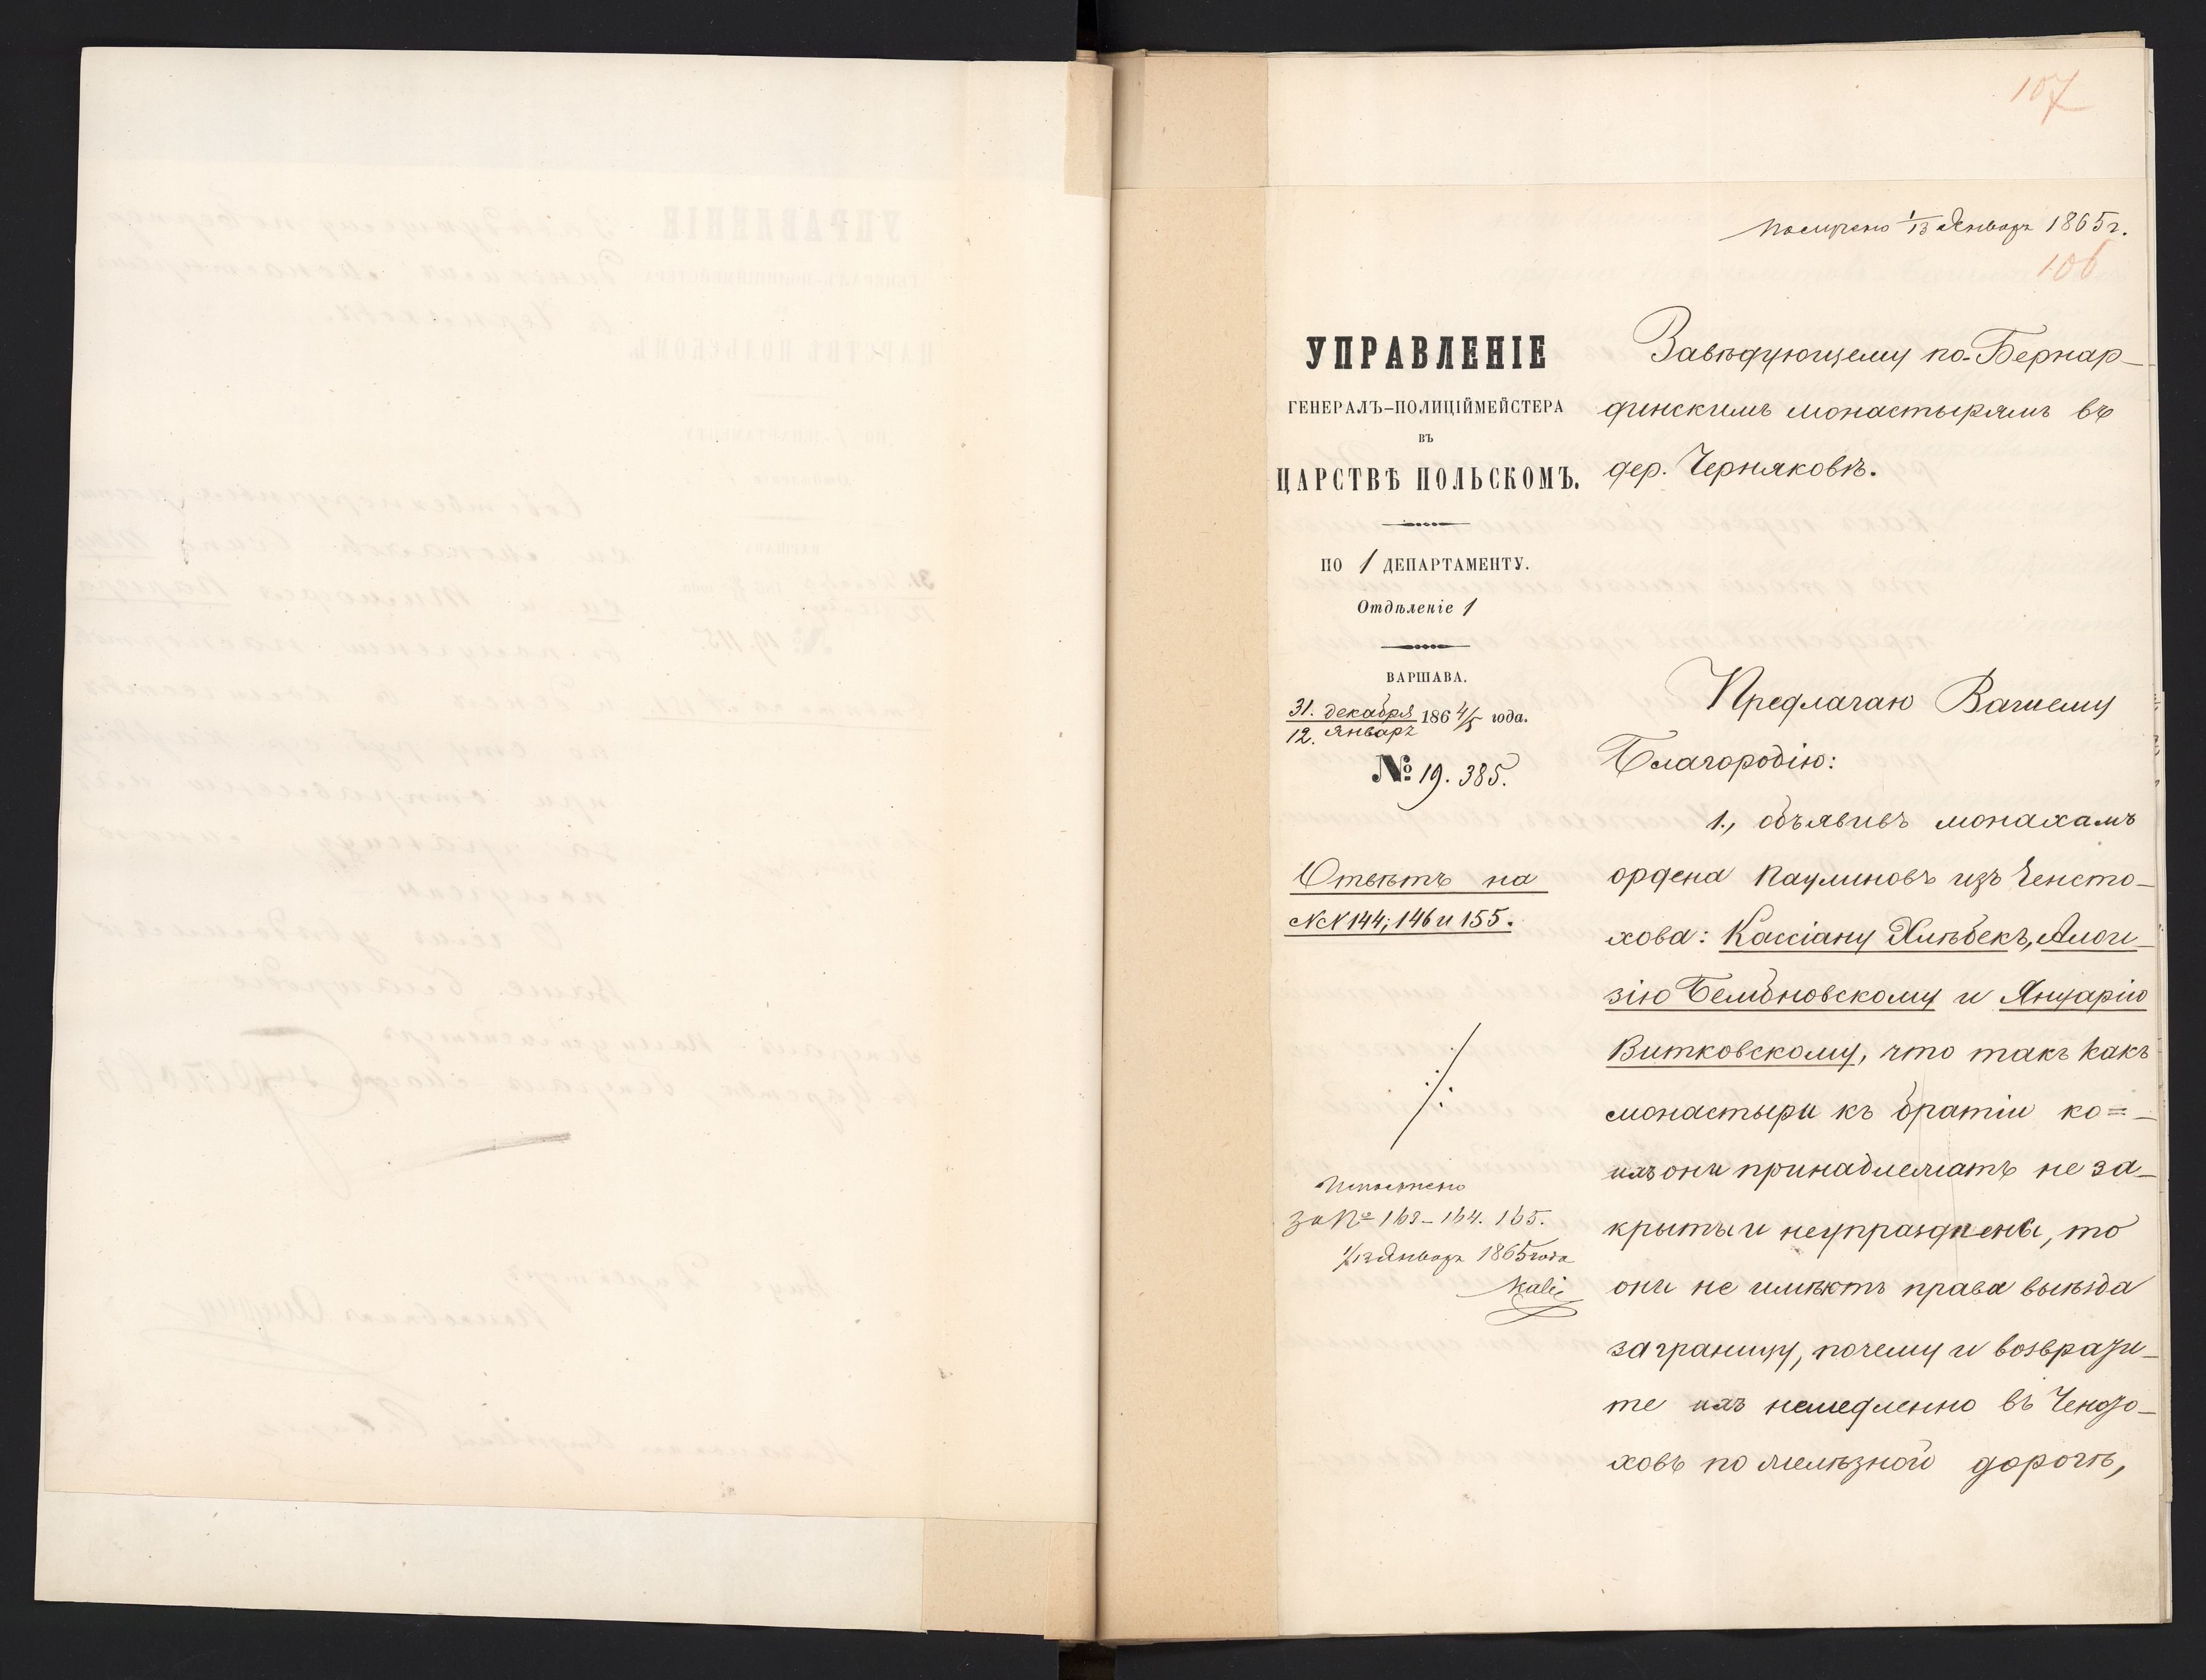 107
Получено 1/13 Января 1865 г.
106
УПРАВЛЕНІЕ
ГЕНЕРАЛЪ-ПОЛИЦІЙМЕЙСТЕРА
ВЪ
ЦАРСТВѢ ПОЛЬСКОМЪ.
ПО 1 ДЕПАРТАМЕНТУ.
Отдѣленіе 1
ВАРШАВА.
31. декабря 1864/5 года.
12. Января
№ 19.385.
Отвѣтъ на
№№ 144; 146 и 155.
Исполнено
за № 163-164. 165.
1/13 Января 1865 года
Завѣдующему по-Бернар-
динскимъ монастырямъ въ
дер. Черняковѣ.
Предлагаю Вашему
Благородію:
1., объявивъ монахамъ
ордена Паулиновъ изъ Ченсто-
хова: Кассіану Хлѣбекъ, Алои-
зію Бембновскому и Януарію
Витковскому, что такъ какъ
монастыри къ братіи ко=
ихъ они принадлежатъ не за-
крыты и неупразднены, то
они не имѣютъ права выѣзда
заграницу, почему и возврати-
те ихъ немедленно въ Ченсто-
ховъ по желѣзной дорогѣ,